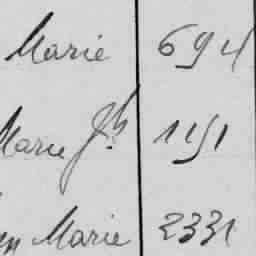 Marie 694
Marie Jh 1151
Marie 2331